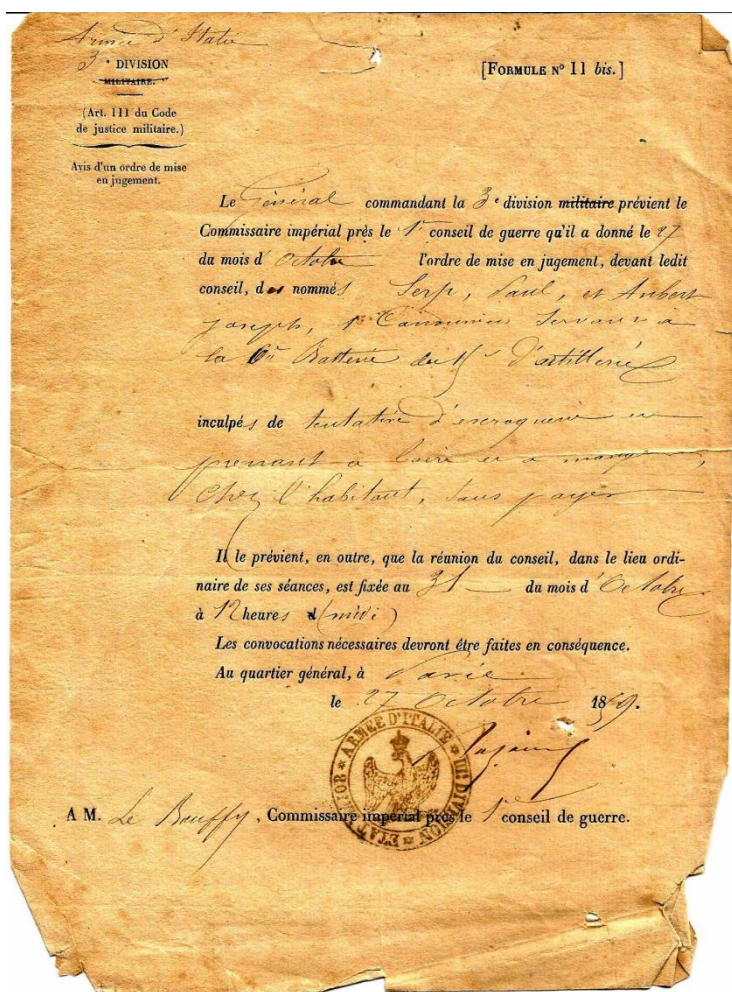 Armée d'Italie
3e DIVISION
MILITAIRE.
[FORMULE N° 11 bis.]
(Art. 111 du Code
de justice militaire.)
Avis d'un ordre de mise
en jugement.
Le Général commandant la 3e division militaire prévient le
Commissaire impérial près le 1er conseil de guerre qu'il a donné le 27
du mois d'Octobre l'ordre de mise en jugement, devant ledit
conseil, des nommés Serp, Paul, et Aubert
joseph, Canonniers Servans à
la 6e Batterie du d'artillerie
inculpés de tentative d'escroquerie en
prenant à boire et à manger,
chez l'habitant, sans payer
Il le prévient, en outre, que la réunion du conseil, dans le lieu ordi-
naire de ses séances, est fixée au 31 du mois d'Octobre
à 12 heures (midi)
Les convocations nécessaires devront être faites en conséquence.
Au quartier général, à Pavie
le 27 Octobre 1859.
ARMEE D'ITALIE * IIIE DIVISION * ETAT MAJOR *
A M. Le Bouffy, Commissaire impérial près le 1er conseil de guerre.